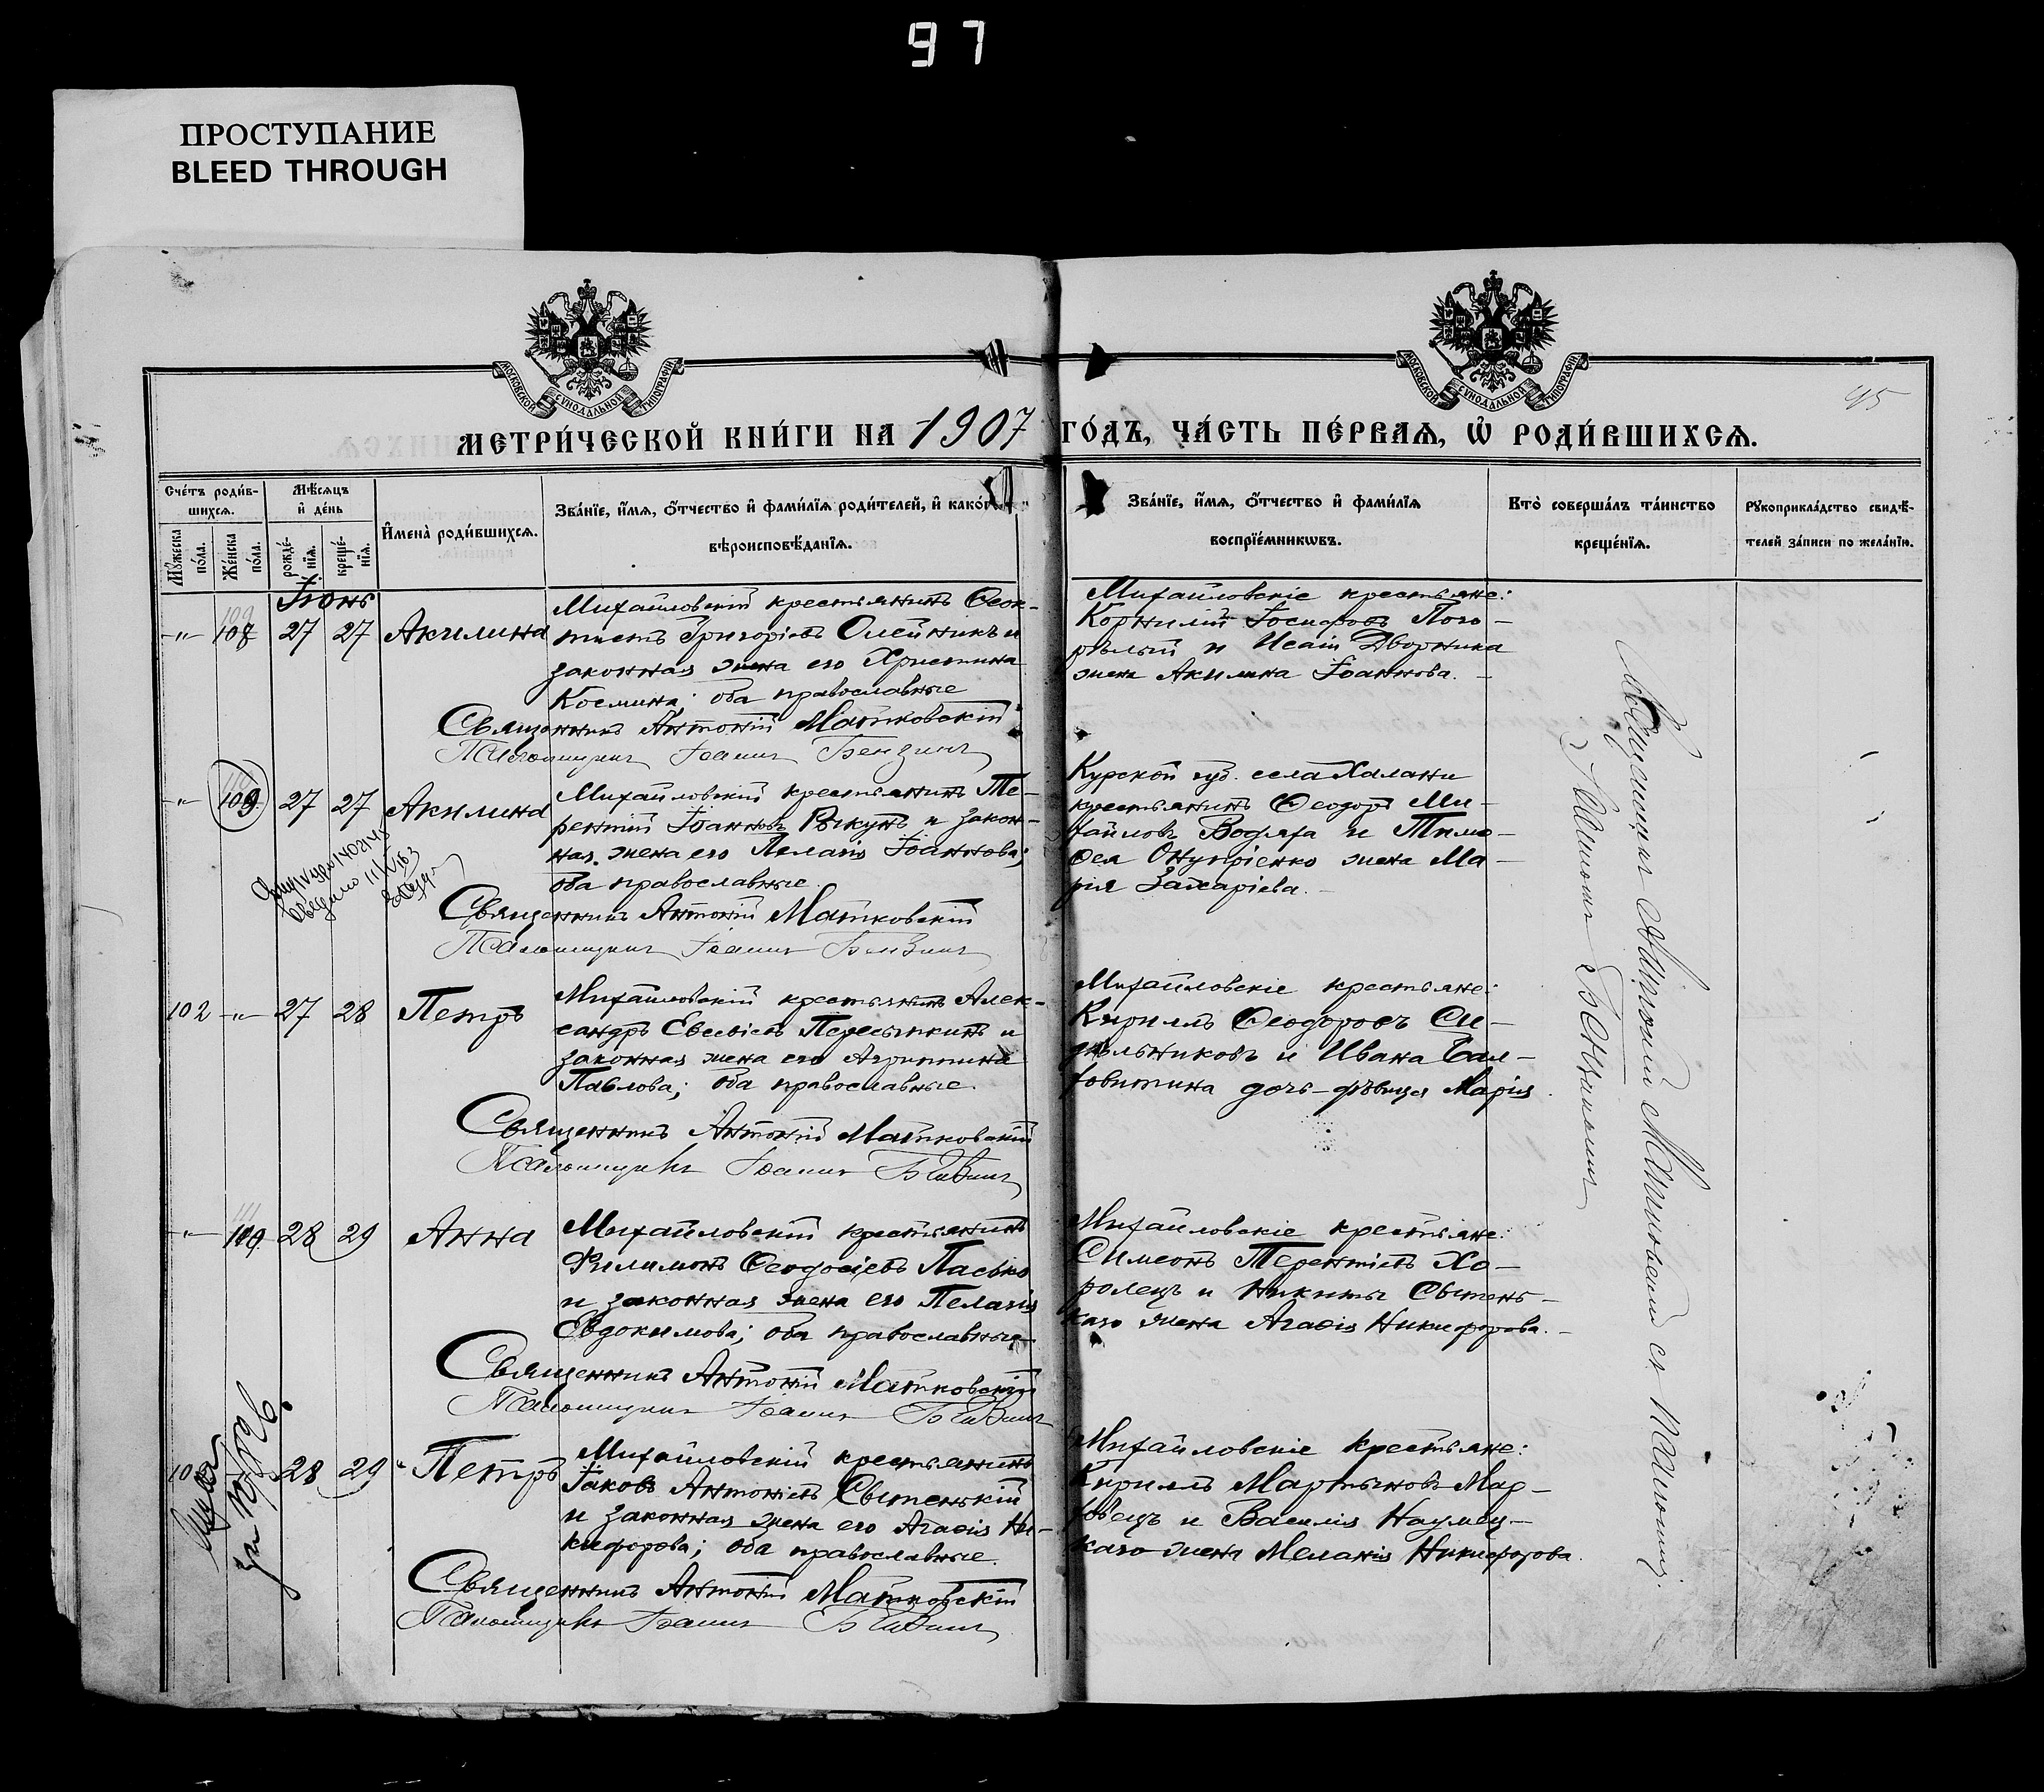 97
ПРОСТУПАНИЕ
BLEED THROUGH
МОСКОВСКОЙ СѴНОДАЛЬНОЙ ТИПОГРАФІИ
МОСКОВСКОЙ СѴНОДАЛЬНОЙ ТИПОГРАФІИ
45
МЕТРИ́ЧЕСКОЙ КНИ́ГИ НА 1907 ГО́ДЪ, ЧА́СТЬ ПЕ́РВАѦ, Ѡ҆ РОДИ́ВШИХСѦ.
Сче́тъ роди́в-
шихсѧ.
Мѣ́сѧцъ
и҆ де́нь
И҆мена̀ роди́вшихсѧ.
Зва́нїе, и҆́мѧ, ѻ҆́тчество и҆ фами́лїѧ роди́телей, и҆ како́гѡ
вѣроисповѣ́данїѧ.
Мꙋ́жеска по́ла.
Же́нска по́ла.
рожде́-нїѧ.
креще́-нїѧ.
Зва́нїе, и҆́мѧ, ѻ҆́тчество и҆ фами́лїѧ
воспрїе́мникѡвъ.
Кто̀ соверша́лъ та́инство
креще́нїѧ.
Рꙋкоприкла́дство свидѣ́-
телей за́писи по жела́нїю.
Іюнь
-"- 108 27 27 Акилина
Михайловскій крестьянинъ Ѳеок-
тистъ Григоріевъ Олейникъ и
законная жена его Христина
Космина; оба православные
Священникъ Антоній Матковскій
Псаломщикъ Іоаннъ Бензинъ
Михайловскіе крестьяне:
Корнилій Іосифовъ Пого-
рѣлый и Исаіи Дворника
жена Акилина Іоаннова.
-"- 109 27 27 Акилина
Михайловскій крестьянинъ Те-
рентій Іоанновъ Рыкунъ и закон-
ная жена его Пелагія Іоаннова;
оба православные.
Священникъ Антоній Матковскій
Псаломщикъ Іоаннъ Бензинъ
Курской губ. села Халани
крестьянинъ Ѳеодоръ Ми-
хайловъ Водяха и Тимо-
ѳея Онупріенко жена Ма-
рія Захаріева.
102 -"- 27 28 Петръ
Михайловскій крестьянинъ Алек-
сандръ Евсѣевъ Пересыпкинъ и
законная жена его Агриппина
Павлова; оба православные.
Священникъ Антоній Матковскій
Псаломщикъ Іоаннъ Бензинъ
Михайловскіе крестьяне:
Кириллъ Ѳеодоровъ Си-
дѣльниковъ и Ивана
дочь-дѣвица Марія.
-"- 28 29 Анна
Михайловскій крестьянинъ
Филимонъ Ѳеодосіевъ Пасько
и законная жена его Пелагія
Евдокимова; оба православные
Священникъ Антоній Матковскій
Псаломщикъ Іоаннъ Бензинъ
Михайловскіе крестьяне:
Симеонъ Терентіевъ Хо-
ролецъ и Никиты Сытень-
каго жена Агаѳія Никифорова.
28 29 Петръ
Михайловскій крестьянинъ
Іаковъ Антоніевъ Сытенькій
и законная жена его Агаѳія Ни-
кифорова; оба православные.
Священникъ Антоній Матковскій
Псаломщикъ Іоаннъ Бензинъ
Михайловскіе крестьяне:
Кириллъ Мартыновъ Мар-
ховецъ и Василія Наумец-
каго жена Меланія Никифорова
Священникъ Антоній Матковскій съ Псаломщ.
Іоанномъ Бензинымъ